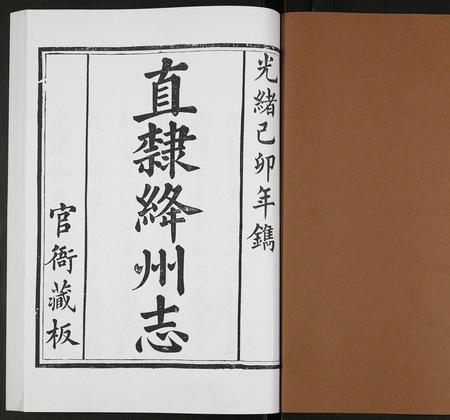 光緒己卯年鐫
直隸絳州志
官衙藏板